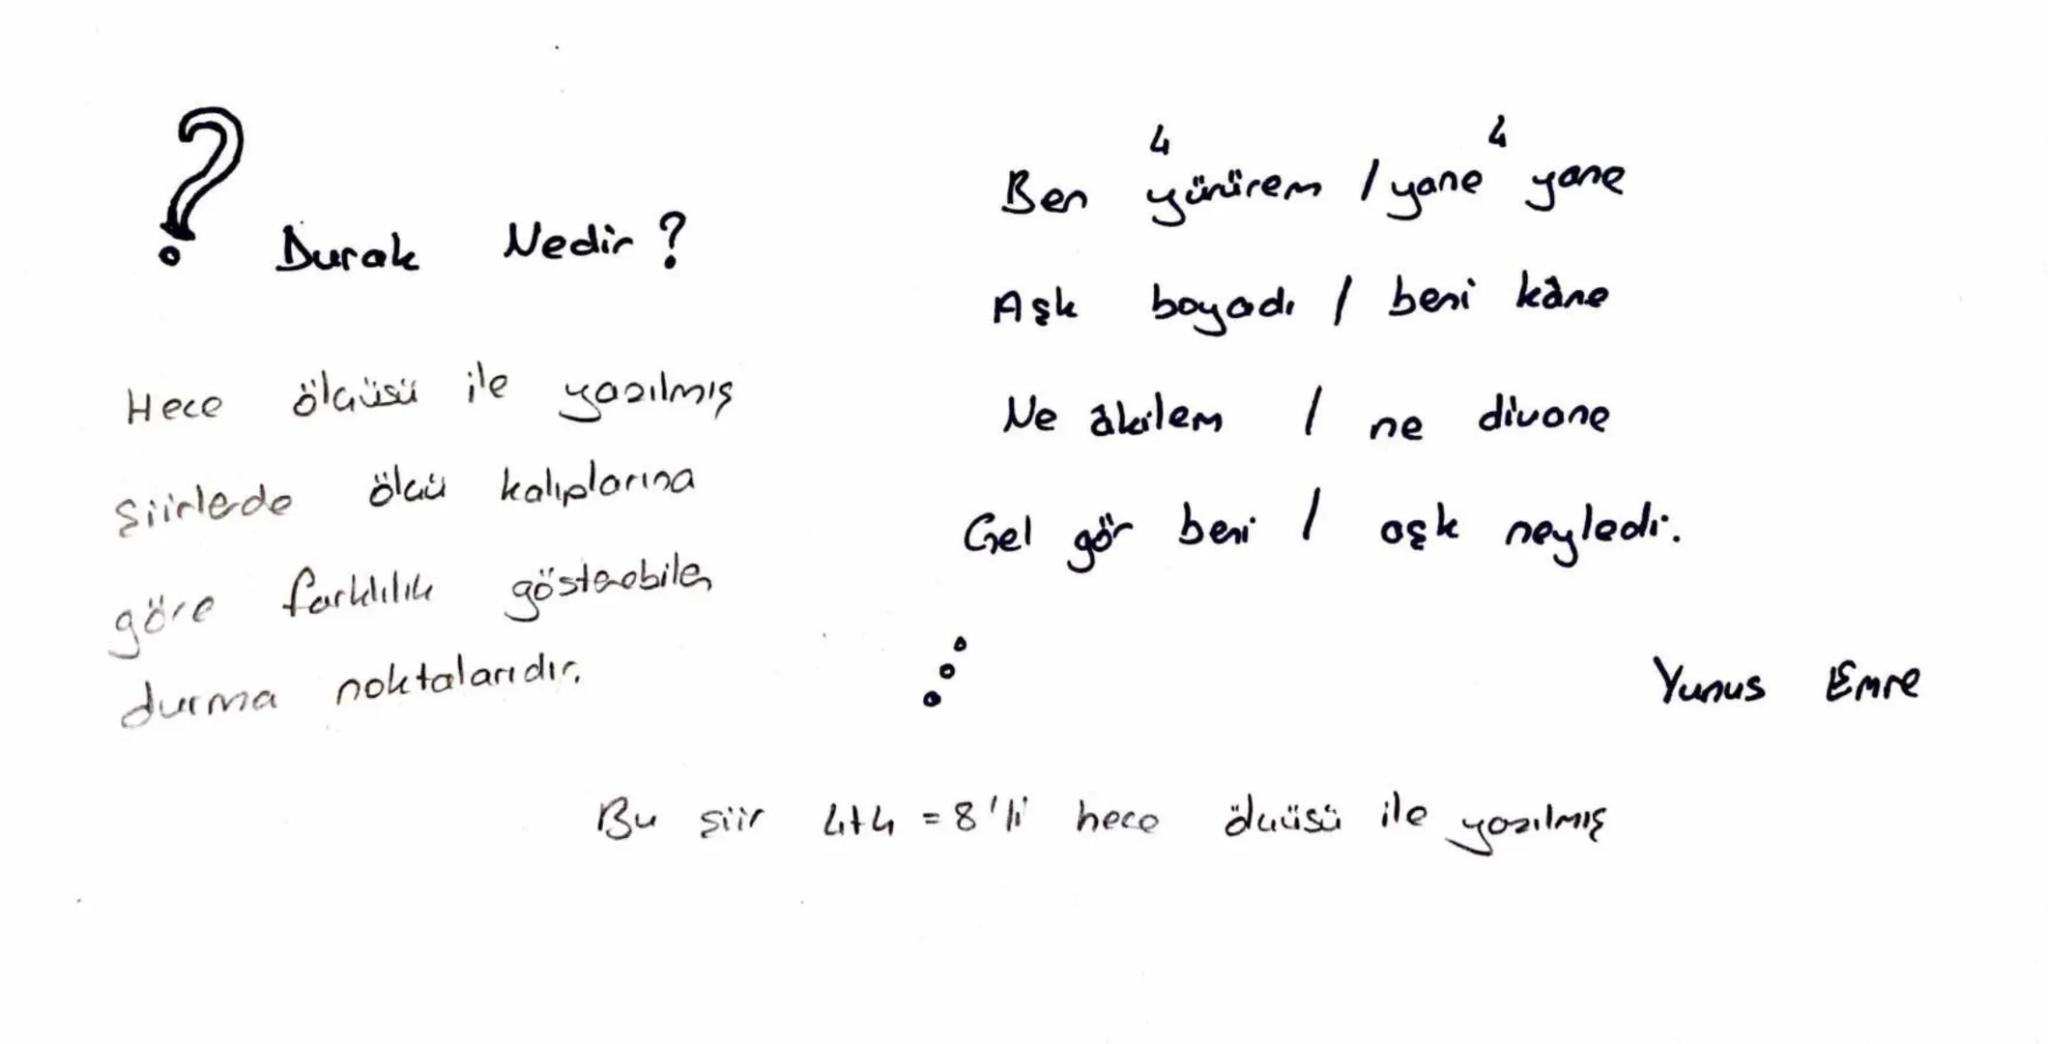 ? Durak Nedir ?
Hece ölçüsü ile yazılmış
şiirlede ölçü kalıplarına
göre farklılık gösterebilen
durma noktalarıdır.
4 4
Ben yürürem / yane yane
Aşk boyadı / beni kâne
Ne âkilem / ne divane
Gel gör beni / aşk neyledi.
Yunus Emre
Bu şiir 4+4 = 8'li hece ölçüsü ile yazılmış